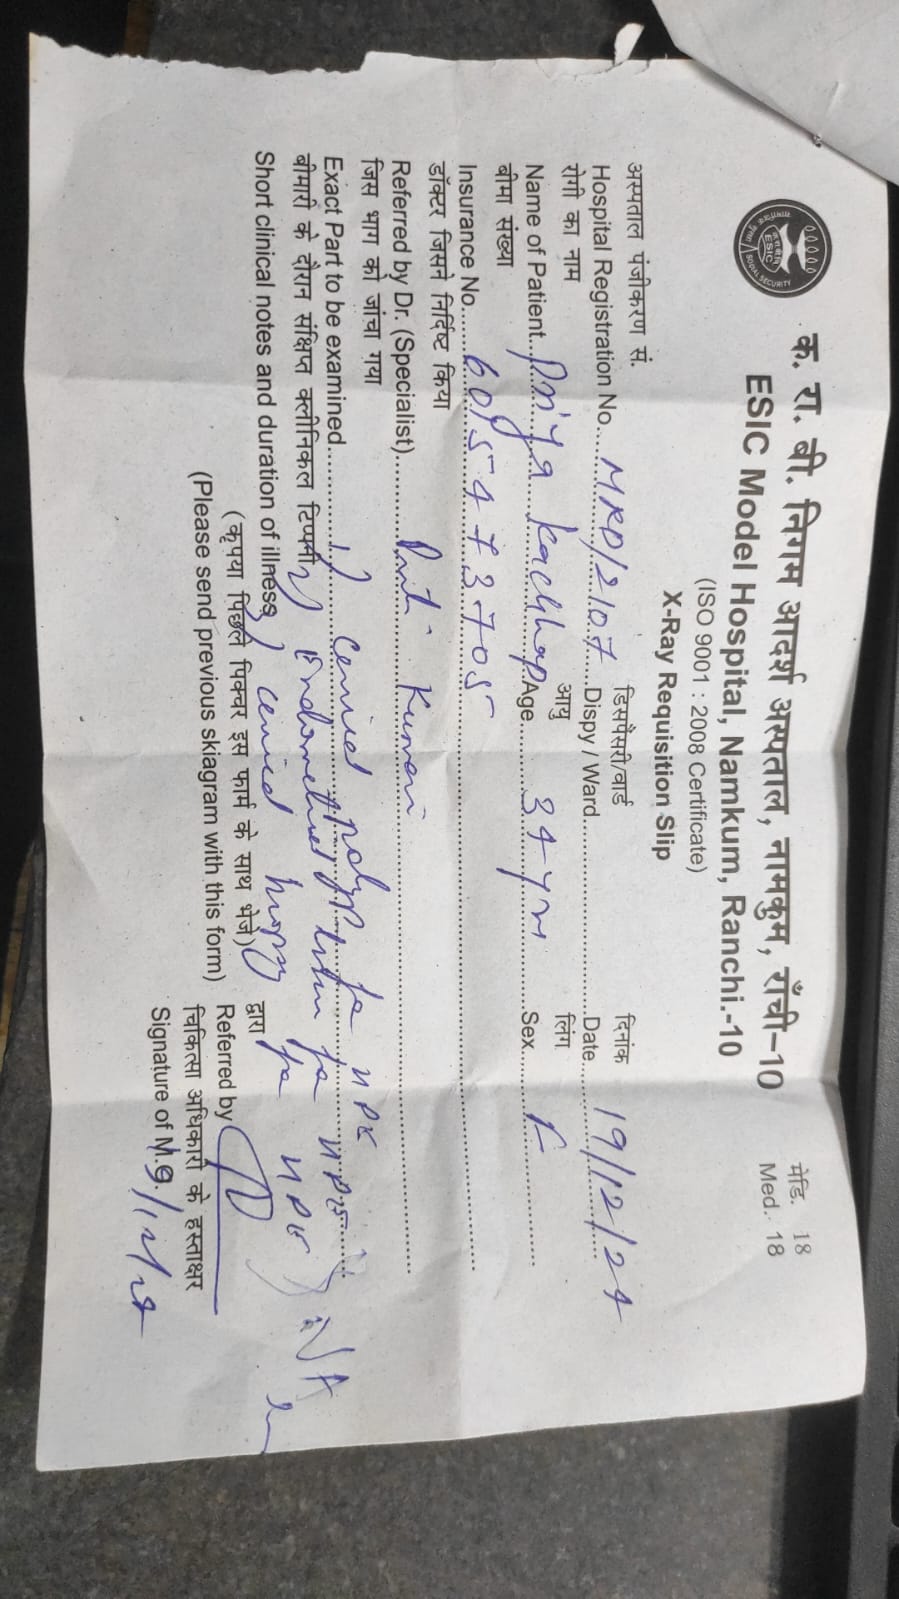 क. रा. बी. निगम आदर्श अस्पताल, नामकुम, राँची–10
ESIC Model Hospital, Namkum, Ranchi.-10
(ISO 9001 : 2008 Certificate)
X-Ray Requisition Slip
मेडि. 18
Med. 18
ESIC
SOCIAL SECURITY
अस्पताल पंजीकरण सं. डिसपैंसरी/वार्ड दिनांक
Hospital Registration No.... MRD/2107 ....Dispy / Ward.... Date.... 19/12/24
रोगी का नाम आयु लिंग
Name of Patient... Priya Kachhap Age.... 34 yrs Sex.... F
बीमा संख्या
Insurance No..... 6015473705
डॉक्टर जिसने निर्दिष्ट किया
Referred by Dr. (Specialist)..... Kumari
जिस भाग को जांचा गया
Exact Part to be examined..... 1) cervical polyp for HPE
बीमारी के दौरान संक्षिप्त क्लीनिकल टिप्पणी 2) Endometrial for HPE
Short clinical notes and duration of illness 3) cervical biopsy for HPE
(कृपया पिछले पिक्चर इस फार्म के साथ भेजे)
(Please send previous skiagram with this form)
द्वारा
Referred by
चिकित्सा अधिकारी के हस्ताक्षर
Signature of M.O.